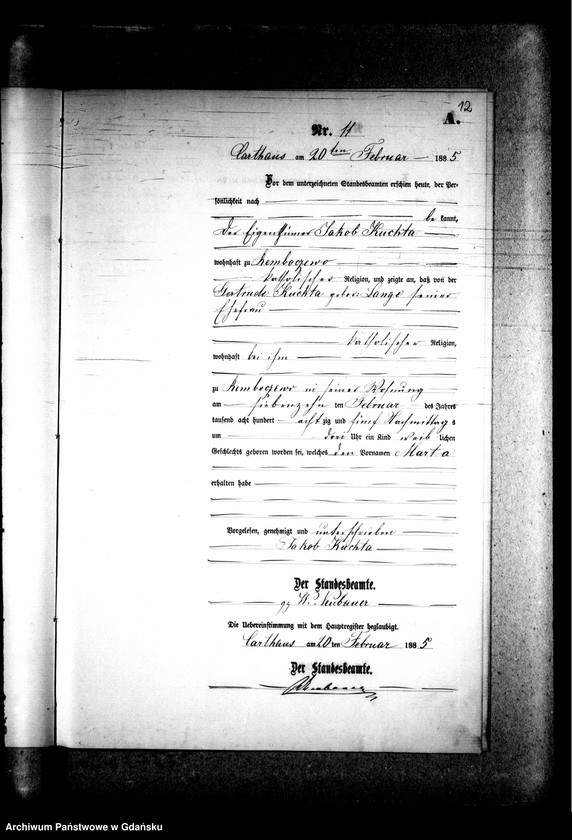 12
A.
Nr. 11
Carthaus am 20ten Februar 1885.
Vor dem unterzeichneten Standesbeamten erschien heute, der Per-
sönlichkeit nach
be kannt,
Der Eigenthümer Jakob Kuchta
wohnhaft zu Remboczewo
katholischer Religion, und zeigte an, daß von der
Gertrude Kuchta gebor. Lange seiner
Ehefrau
katholischer Religion,
wohnhaft bei ihm
zu Remboczewo in seiner Wohnung
am siebenzehn ten Februar des Jahres
tausend acht hundert acht zig und fünf Nachmittag s
um drei Uhr ein Kind weib lichen
Geschlechts geboren worden sei, welches den Vornamen Marta
erhalten habe
Vorgelesen, genehmigt und unterschrieben
Jakob Kuchta
Der Standesbeamte.
gz W. Neubauer
Die Uebereinstimmung mit dem Hauptregister beglaubigt.
Carthaus am 20 ten Februar 1885
Der Standesbeamte.
Neubauer
Archiwum Państwowe w Gdańsku